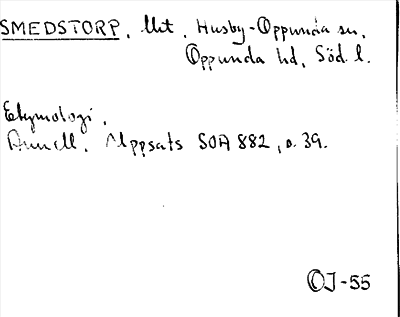 SMEDSTORP, Utt, Husby-Oppunda sn,
Oppunda hd, Söd. l.
Etymologi,
Arnell, Uppsats SOA 882, s. 39.
OJ-55